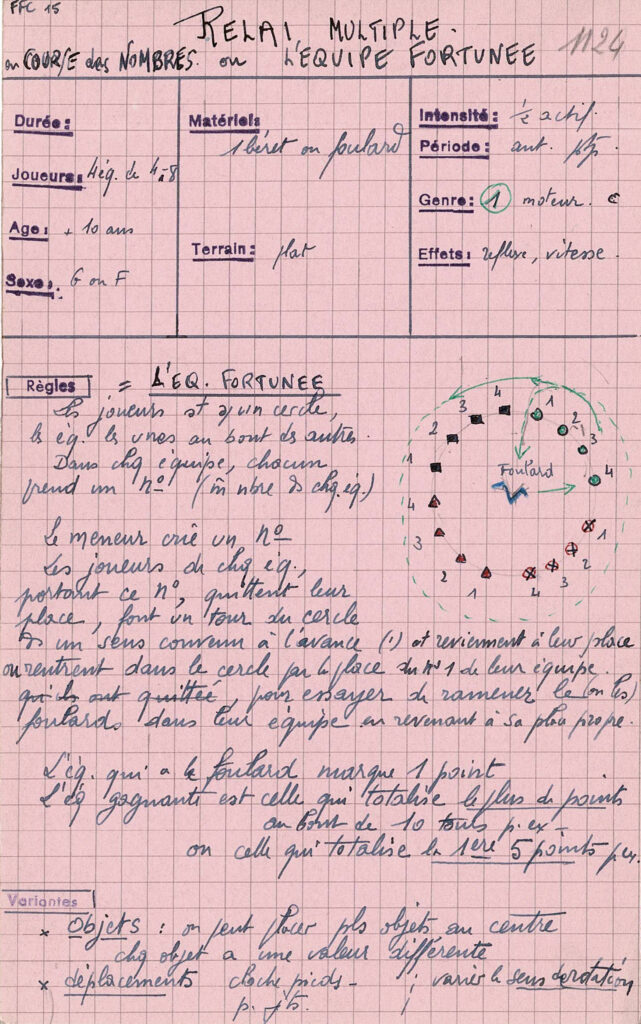 FFC 15
RELAI MULTIPLE.
ou COURSE des NOMBRES. ou L'EQUIPE FORTUNEE
1124
Durée:
Joueurs: 4 éq. de 4-8
Age: + 10 ans
Sexe: G ou F
Matériel:
1 béret ou foulard
Terrain: plat
Intensité: ½ actif.
Période: ant.
Genre: 1 moteur. C
Effets: reflexe, vitesse.
Règles = L'EQ. FORTUNEE
Les joueurs st un cercle,
les éq. les unes au bout des autres.
Dans chq équipe, chacun
prend un no (m nbre ds chq. éq.)
Le meneur crie un no
Les joueurs de chq éq.,
portant ce no, quittent leur
place, font un tour du cercle
ds un sens convenu à l'avance (1) et reviennent à leur place
ou rentrent dans le cercle par la place du no 1 de leur équipe.
qu'ils ont quittée, pour essayer de ramener le (ou les)
foulards dans leur équipe en revenant à sa place propre.
L'éq. qui a le foulard marque 1 point
L'éq gagnante est celle qui totalise le plus de points
au bout de 10 tours p. ex -
ou celle qui totalise la 1ere 5 points p. ex.
1 2 3 4
1 2 3 4
1 2 3 4
1 2 3 4
Foulard
Variantes
x Objets : on peut placer pls objets au centre
chq objet a une valeur différente
x déplacements cloche pieds - ; varier le sens de rotation
p. jts.